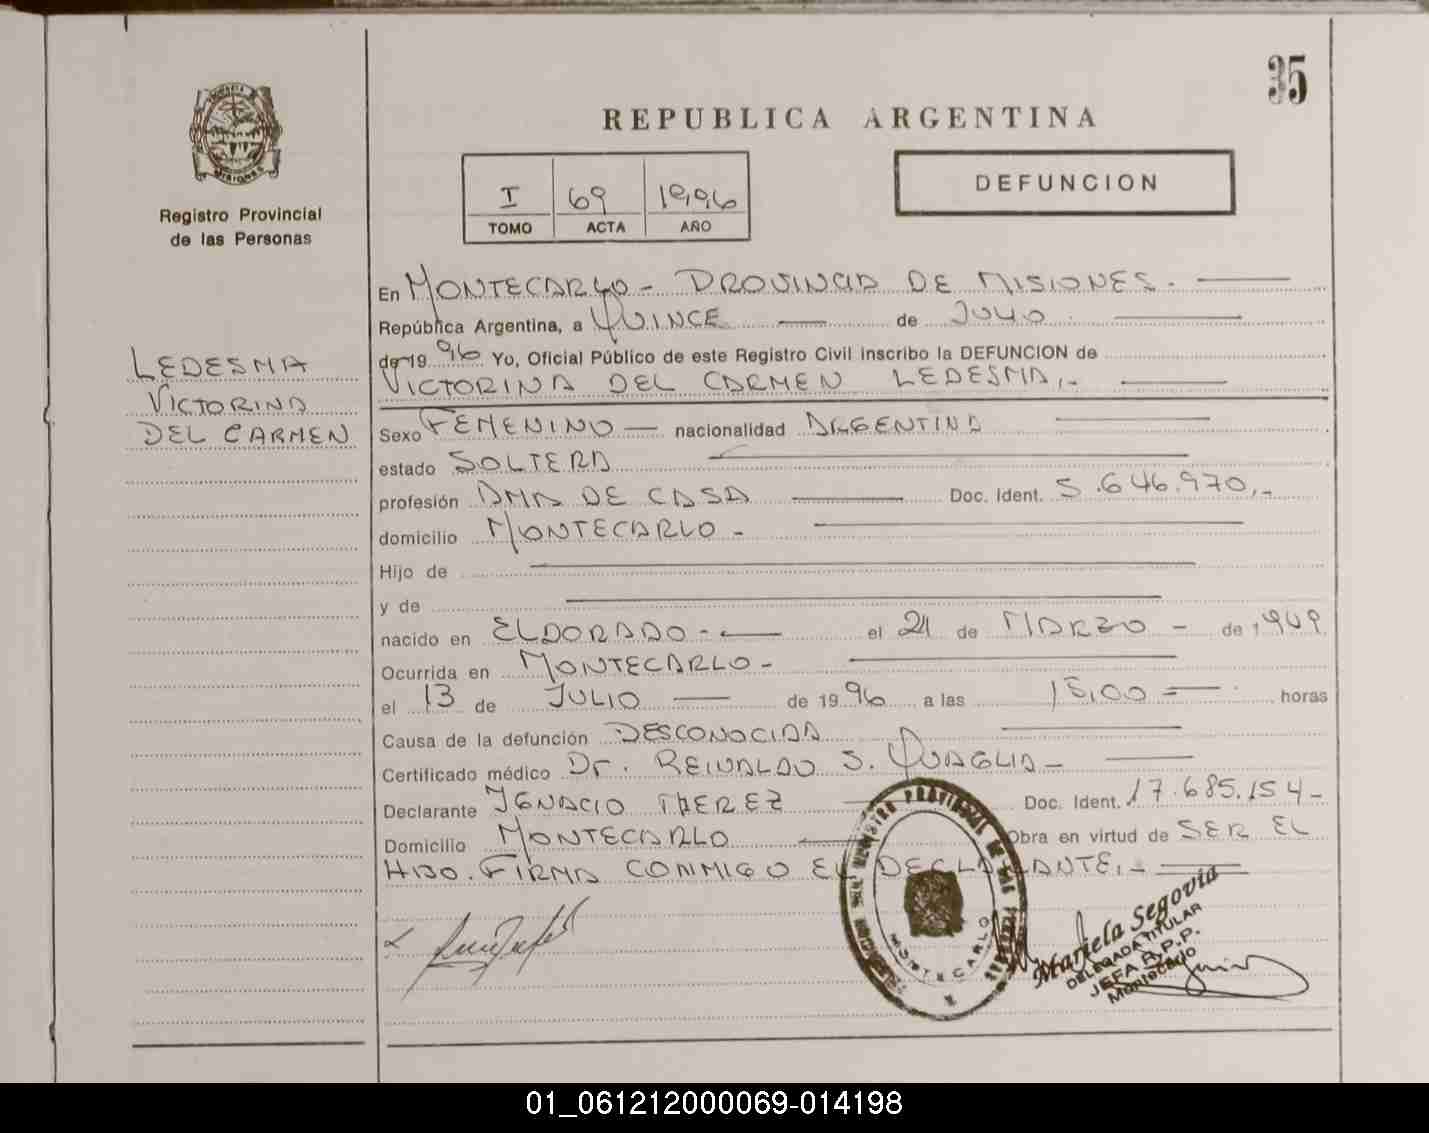 35
REPUBLICA ARGENTINA
PROVINCIA
MISIONES
Registro Provincial
de las Personas
I 69 1996
TOMO ACTA AÑO
DEFUNCION
LEDESMA
VICTORINA
DEL CARMEN
En MONTECARLO - PROVINCIA DE MISIONES.
República Argentina, a QUINCE de JULIO
de 19 96 Yo, Oficial Público de este Registro Civil inscribo la DEFUNCION de
VICTORINA DEL CARMEN LEDESMA.-
Sexo FEMENINO nacionalidad ARGENTINA
estado SOLTERA
profesión AMA DE CASA Doc. Ident. 5.646.970.-
domicilio MONTECARLO -
Hijo de
y de
nacido en ELDORADO - el 21 de MARZO - de 1949
Ocurrida en MONTECARLO -
el 13 de JULIO de 19 96 a las 15,00 horas
Causa de la defunción DESCONOCIDA
Certificado médico Dr. REINALDO S. QUAGLIA -
Declarante IGNACIO Doc. Ident. 17.685.154 -
Domicilio MONTECARLO Obra en virtud de SER EL
HIJO. FIRMA CONMIGO EL DECLARANTE.-
DELEGACION DEL REGISTRO PROVINCIAL DE LAS PERSONAS
MONTECARLO
Mariela Segovia
DELEGADA TITULAR
JEFA R.P.P.
Montecarlo
01_061212000069-014198